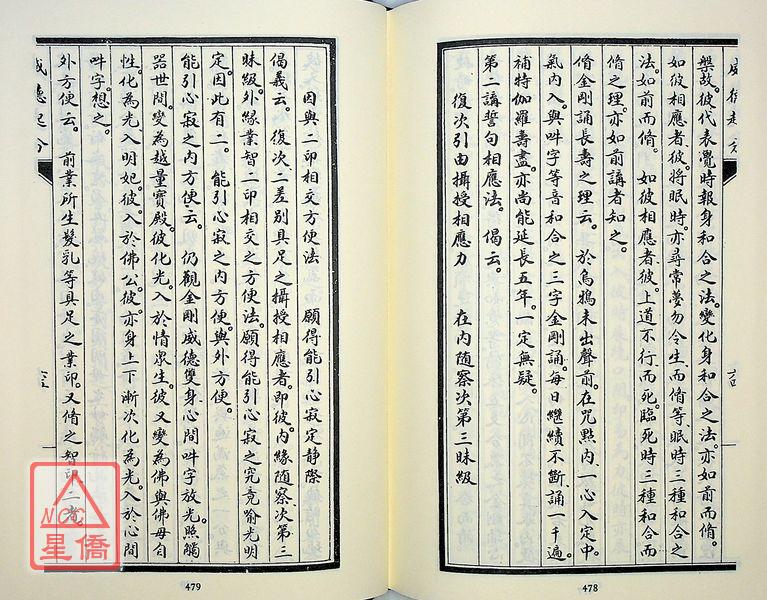 威德起分
槃故。彼代表覺時報身和合之法。變化身和合之法。亦如前而脩。
如彼相應者。彼。將眠時。亦尋常夢勿令生。而脩等。眠時三種和合之
法。如前而脩。 如彼相應者。彼。上道不行而死。臨死時三種和合而
脩之理。亦如前講者知之。
脩金剛誦長壽之理云。 於烏鴉未出聲前。在咒點內。一心入定中。
氣內入。與吽字等音和合之三字金剛誦。每日繼續不斷。誦一千遍。
補特伽羅壽盡。亦尚能延長五年。一定無疑。
第二講誓句相應法。 偈云。
復次引由攝授相應力 在內隨察次第三昧級
六四
478
因與二印相交方便法 願得能引心寂定靜際
偈義云。 復次。二差別具足之攝授相應者。即彼。內緣隨察。次第三
昧級。外緣業智二印相交之方便法。願得能引心寂之究竟喻光明
定。因此有二。 能引心寂之內方便。與外方便。
能引心寂之內方便云。 仍觀金剛威德雙身心間吽字放光。照觸
器世間。變為越量寶殿。彼化光。入於情眾生。彼又變為佛與佛母自
性。化為光。入明妃。彼。入於佛公。彼。亦身上下漸次化為光。入於心間
吽字。想之。
外方便云。 前業所生髮乳等具足之業印。又脩之智印二者。
威德起分
六五
479
NCC
星僑